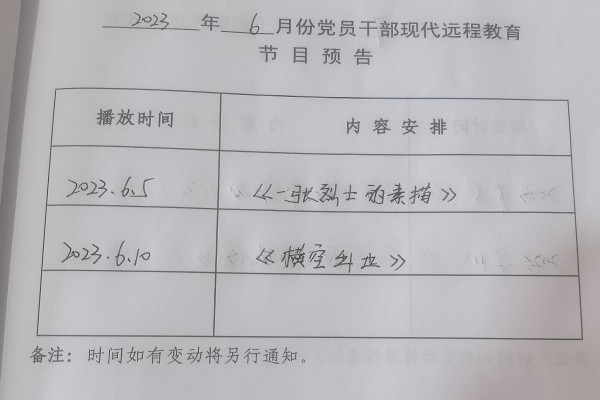 2023 年 6 月份党员干部现代远程教育
节目预告
播放时间 内容安排
2023.6.5 《一张烈士的素描》
2023.6.10 《横空出世》
备注：时间如有变动将另行通知。